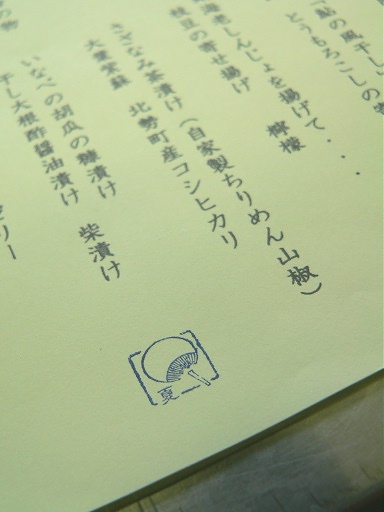 鮎の風干し
とうもろこしの
海老しんじょを揚げて・・・
檸檬
枝豆の寄せ揚げ
さざなみ茶漬け（自家製ちりめん山椒）
大葉実蘇 北勢町産コシヒカリ
いなべの胡瓜の糠漬け 柴漬け
干し大根酢醤油漬け
リー
夏